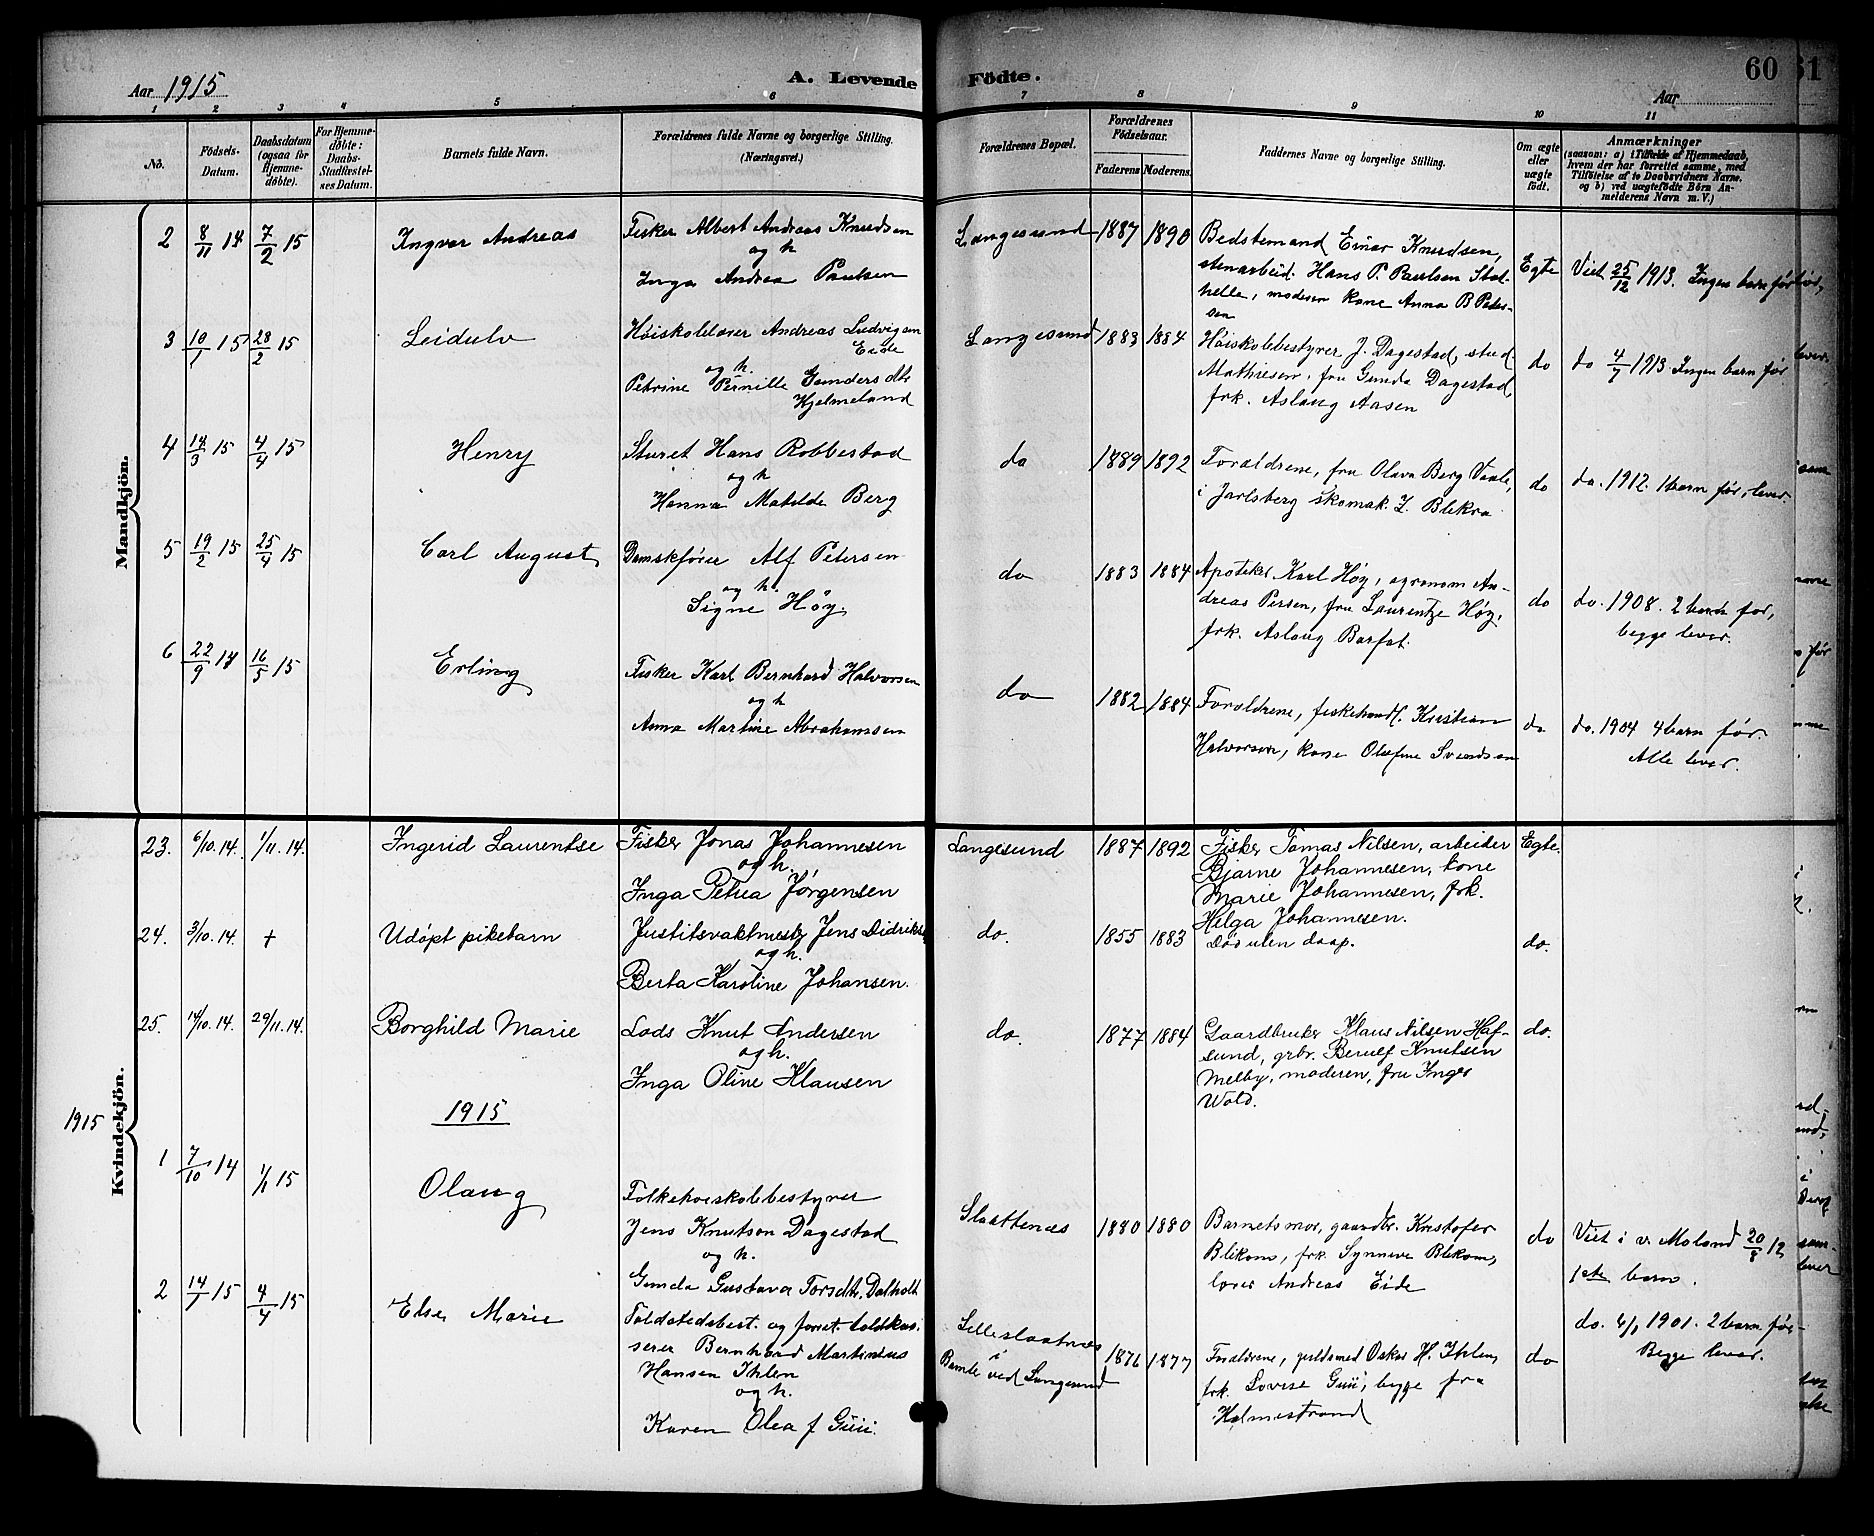 Aar 1915
A. Levende
Födte.
60
31
Aar
1 2 3 4 5 6 7 8 9 10 11
No.
Födsels-
Datum.
Daabsdatum
(ogsaa for
Hjemme-
døbte).
For Hjemme-
døbte:
Daabs-
Stadfæstel-
ses Datum.
Barnets fulde Navn.
Forældrenes fulde Navne og borgerlige Stilling.
(Næringsvei.)
Forældrenes Bopæl.
Forældrenes
Fødselsaar.
Faderens Moderens
Faddernes Navne og borgerlige Stilling.
Om ægte
eller
uægte
født.
Anmærkninger
(saasom: a) i Tilfælde af Hjemmedaab,
hvem der har forrettet samme, med
Tilføielse af to Daabsvidners Navne,
og b) ved uægtefødte Børn An-
melderens Navn m. V.)
Mandkjön.
2 8/11 14 7/2 15 Ingvar Andreas
Fisker Albert Andreas Knudsen
og h
Inga Andrea Paulsen
Langesund 1887 1890
Bedstemand Einar Knudsen,
stenarbeid. Hans P. Paulsen Stat-
helle, moderen kone Anna B Peder-
sen
Egte Viet 25/12 1913. Ingen barn før
3 10/1 15 28/2 15 Leidulv
Høiskolelærer Andreas Ludvigsen
Eide
og h.
Petrine Pernille Gunders dtr
Hjelmeland
Langesund 1883 1884
Høiskolebestyrer J. Dagestad, stud.
Mathiesen. fru Gunda Dagestad
frk. Aslaug Aasen
do do 4/7 1913. Ingen barn før
4 14/3 15 4/4 15 Henry
Sturet Hans Robbestad
og h
Hanna Matilde Berg
do 1889 1892
Forældrene, fru Olava Berg Vaale,
i Jarlsberg skomak. I. Blekra
do do. 1912. 1 barn før, lever
5 19/2 15 25/4 15 Carl August
Damskfører Alf Petersen
og h.
Signe Høy.
do 1883 1884
Apoteker Karl Høy, agronom An-
dreas Persen, fru Laurentze Høy,
frk. Aslaug Barfat.
do do. 1908. 2 barn før,
begge lever.
6 22/9 14 16/5 15 Erling
Fisker Karl Bernhard Halvorsen
og h
Anna Martine Abrahamsen
do 1882 1884
Foraldrene, fiskehandl. Kristian
Halvorsen, kone Olefine Svendsen
do do. 1904 4 barn før.
Alle lever.
Kvindekjön.
23. 6/10.14. 1/11.14. Ingerid Laurentse
Fisker Jonas Johannesen
og h.
Inga Petrea Jørgensen
Langesund 1887 1892
Fisker Tomas Nilsen, arbeider
Bjarne Johannesen, kone
Marie Johannesen, frk.
Helga Johannesen.
Egte.
24. 3/10.14. + Udöpt pikebarn
Justitsvaktmestr Jens Didriks
og h.
Berta Karoline Johansen.
do. 1855 1883
Död uten daap.
do.
25. 14/10.14. 29/11.14. Borghild Marie
Lods Knut Andersen
og h.
Inga Oline Klausen
do. 1877 1884
Gaardbruker Klaus Nilsen Haf-
sund, grbr. Berulf Knutsen
Melby, moderen, fru Inger
Wold.
do.
1915
1915
1 7/10 14 1/1 15 Olaug
Folkehøiskolebestyrer
Jens Knutson Dagestad
og h.
Gunda Gustava Torsdtr. Dalholt
Slaattenæs 1880 1880
Barnets mor, gaardbr. Kristofer
Blikom, frk. Synneve Blekom,
lærer Andreas Eide
do Viet i v. Moland 20/8 12
1ste barn.
2 14/1 15 4/4 15 Else Marie
Toldstedsbest. og forret. toldkas-
serer Bernhard Martinius
Hansen Ihlen
og h.
Karen Olea f Guii.
Lilleslaatnæs
i
Bamle ved Langesund
1876 1877
Foraldrene, guldsmed Oskar H. Ihlen,
frk. Lovise Guii, begge fra
Holmestrand
do do. 4/1 1901. 2 barn før-
Begge lever.